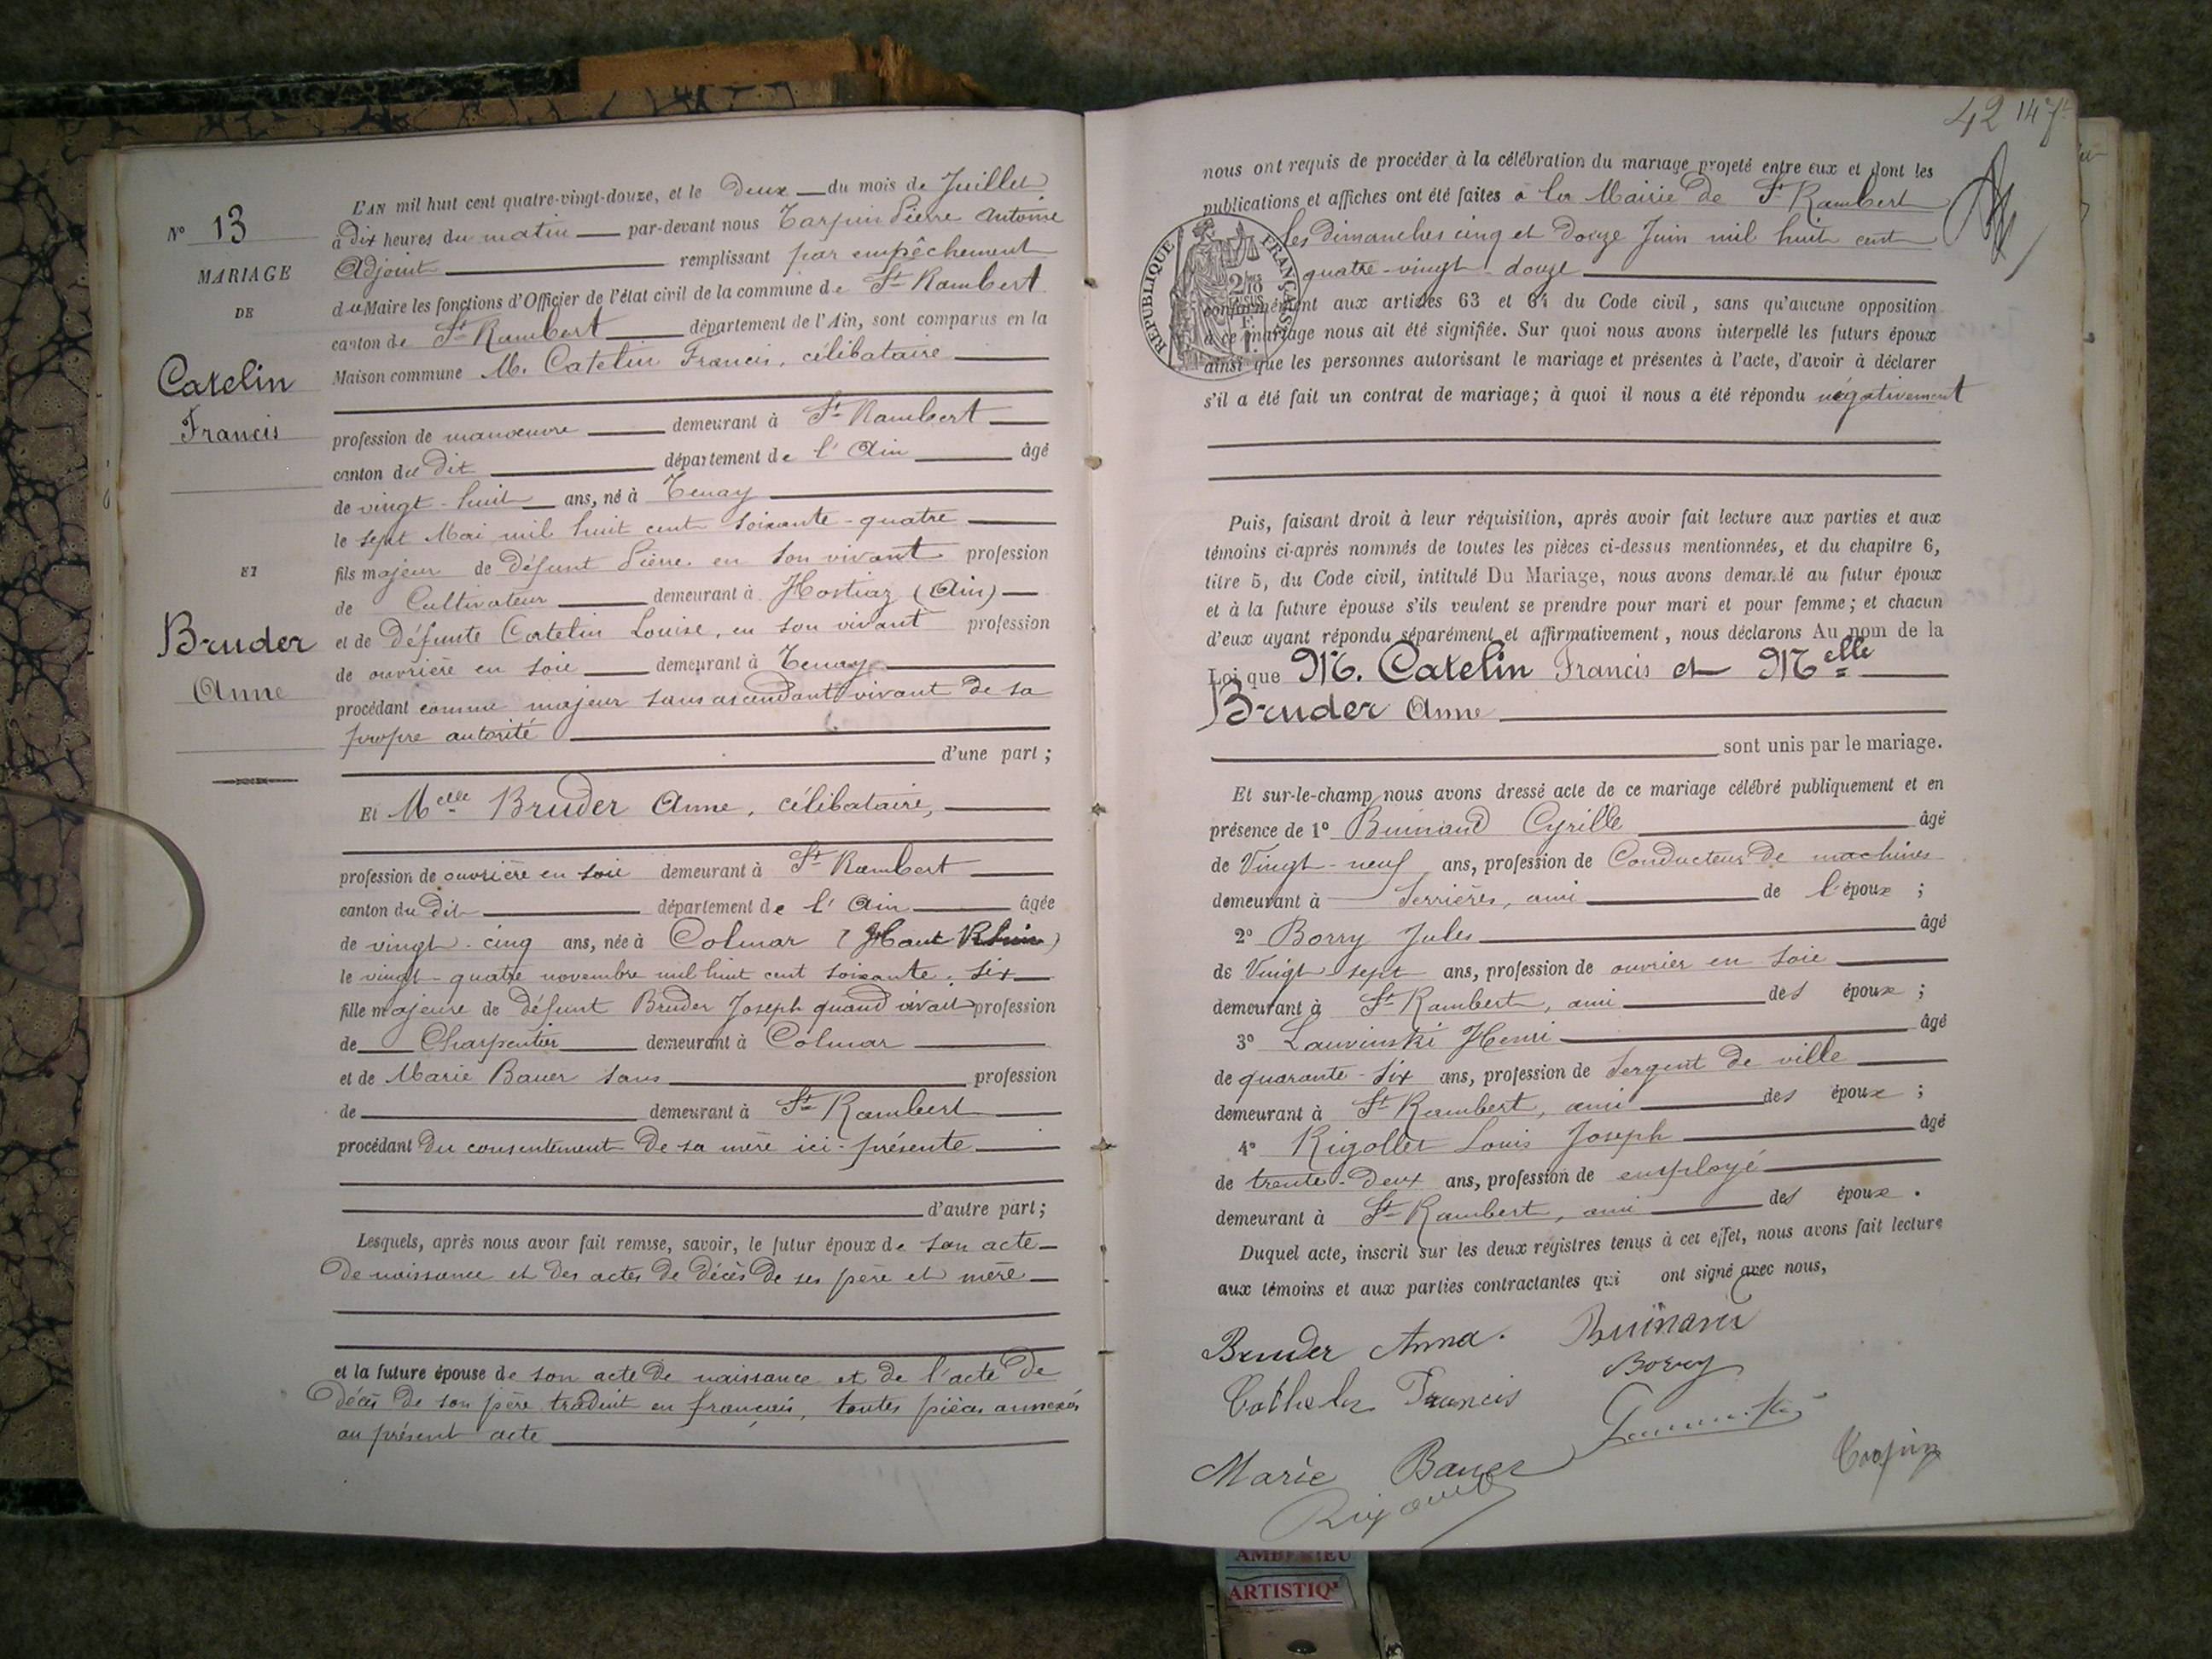 N° 13
MARIAGE
DE
Catelin
Francis
ET
Bruder
Anne
L'AN mil huit cent quatre-vingt-douze, et le Deux du mois de Juillet
à dix heures du matin par-devant nous Tarpin Pierre Antoine
Adjoint remplissant par empêchement
du Maire les fonctions d'Officier de l'état civil de la commune de St Rambert
canton de St Rambert département de l'Ain, sont comparus en la
Maison commune M. Catelin Francis, célibataire
profession de manœuvre demeurant à St Rambert
canton du dit département de l'Ain âgé
de vingt-huit ans, né à Tenay
le sept Mai mil huit cent soixante-quatre
fils majeur de défunt Pierre en son vivant profession
de Cultivateur demeurant à Hostiaz (Ain)
et de Défunte Catelin Louise, en son vivant profession
de ouvrière en soie demeurant à Tenay
procédant comme majeur sans ascendant vivant de sa
propre autorité
d'une part ;
Et Melle Bruder Anne, célibataire,
profession de ouvrière en soie demeurant à St Rambert
canton du dit département de l'Ain âgée
de vingt-cinq ans, née à Colmar (Haut Rhin)
le vingt-quatre novembre mil huit cent soixante-six
fille majeure de défunt Bruder Joseph quand vivait profession
de Charpentier demeurant à Colmar
et de Marie Bauer sans profession
de demeurant à St Rambert
procédant du consentement de sa mère ici-présente
d'autre part ;
Lesquels, après nous avoir fait remise, savoir, le futur époux de son acte
de naissance et des actes de décès de ses père et mère
et la future épouse de son acte de naissance et de l'acte de
décès de son père traduit en français, toutes pièces annexées
au présent acte
42
nous ont requis de procéder à la célébration du mariage projeté entre eux et dont les
publications et affiches ont été faites à la Mairie de St Rambert
les dimanches cinq et douze Juin mil huit cent
quatre-vingt-douze
RÉPUBLIQUE FRANÇAISE
conformément aux articles 63 et 64 du Code civil, sans qu'aucune opposition
à ce mariage nous ait été signifiée. Sur quoi nous avons interpellé les futurs époux
ainsi que les personnes autorisant le mariage et présentes à l'acte, d'avoir à déclarer
s'il a été fait un contrat de mariage ; à quoi il nous a été répondu négativement
Puis, faisant droit à leur réquisition, après avoir fait lecture aux parties et aux
témoins ci-après nommés de toutes les pièces ci-dessus mentionnées, et du chapitre 6,
titre 5, du Code civil, intitulé Du Mariage, nous avons demandé au futur époux
et à la future épouse s'ils veulent se prendre pour mari et pour femme ; et chacun
d'eux ayant répondu séparément et affirmativement, nous déclarons Au nom de la
Loi que M. Catelin Francis et Melle
Bruder Anne
sont unis par le mariage.
Et sur-le-champ nous avons dressé acte de ce mariage célébré publiquement et en
présence de 1° Buinand Cyrille âgé
de Vingt-neuf ans, profession de Conducteur de machines
demeurant à Serrières, ami de l'époux ;
2° Borry Jules âgé
de Vingt-sept ans, profession de ouvrier en soie
demeurant à St Rambert, ami des époux ;
3° Lauvinski Henri âgé
de quarante-six ans, profession de Sergent de ville
demeurant à St Rambert, ami des époux ;
4° Rigollet Louis Joseph âgé
de trente-deux ans, profession de employé
demeurant à St Rambert, ami des époux.
Duquel acte, inscrit sur les deux registres tenus à cet effet, nous avons fait lecture
aux témoins et aux parties contractantes qui ont signé avec nous,
Bruder Anna. Buinand
Borry
Francis
Marie Bauer
Tarpin
AMBERIEU
ARTISTIQ